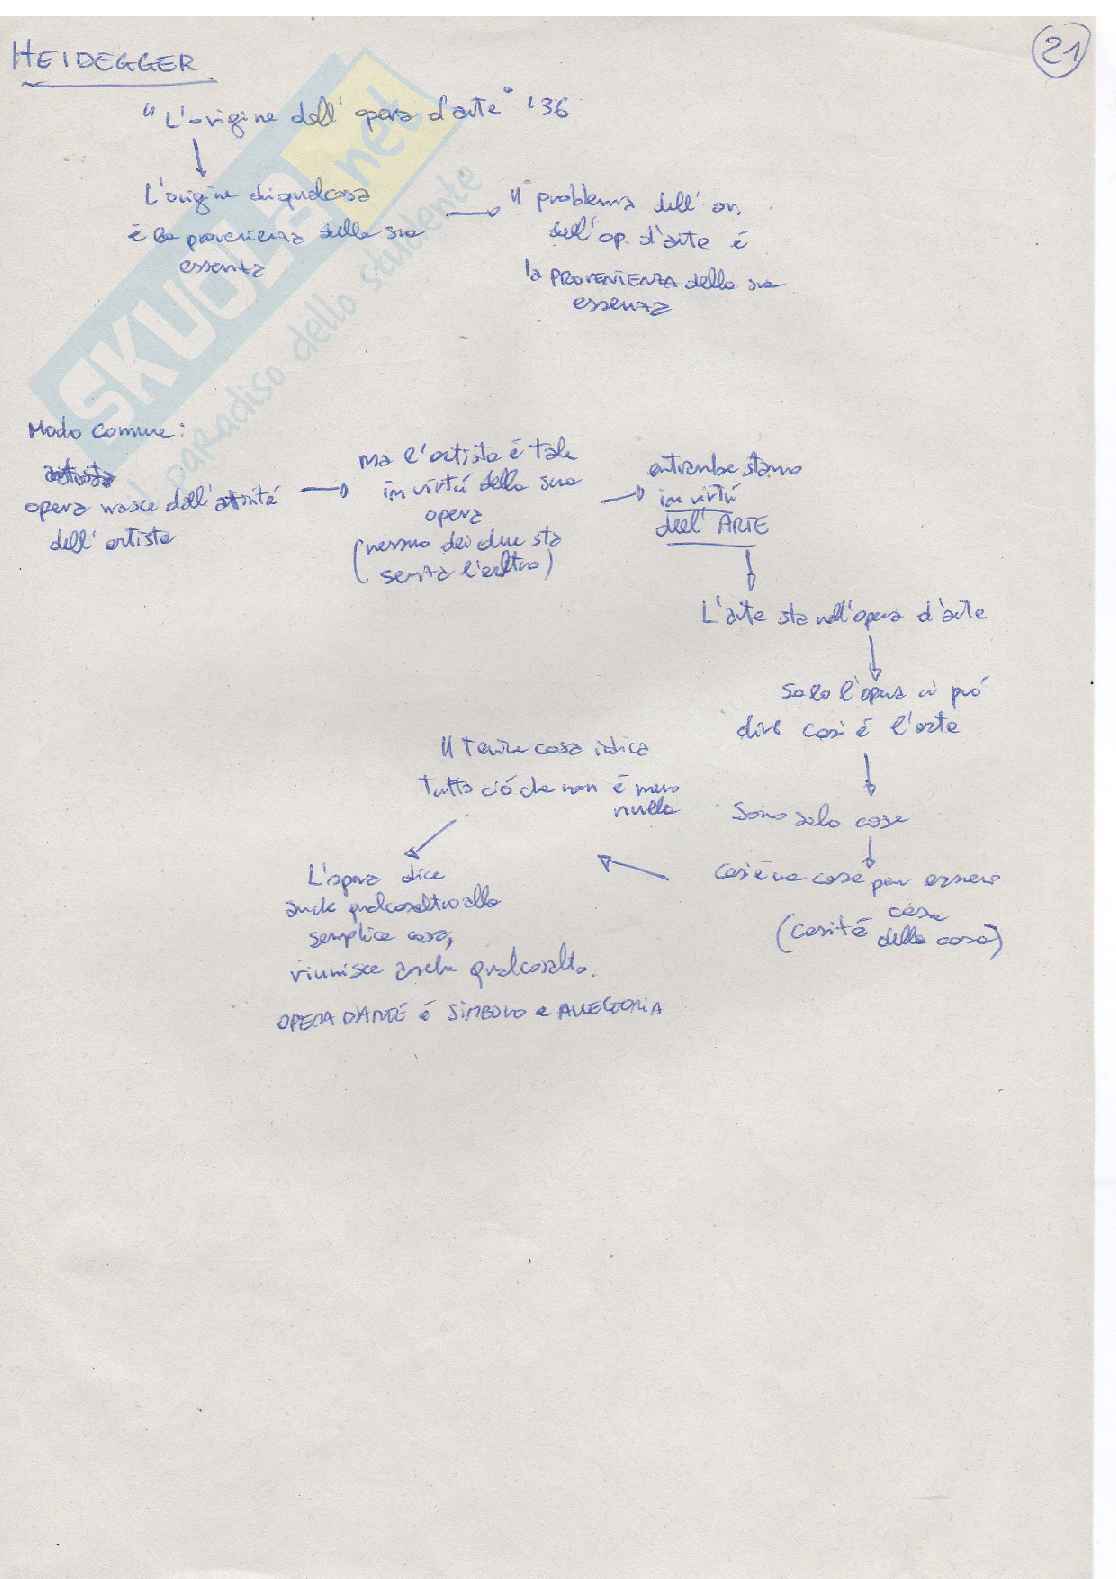 HEIDEGGER
21
"L'origine dell'opera d'arte" '36
L'origine di qualcosa
è la provenienza della sua
essenza
Il problema dell'or.
dell'op. d'arte é
la PROVENIENZA della sua
essenza
Modo comune:
artista
opera nasce dall'attività
dell'artista
ma l'artista é tale
in virtú della sua
opera
(nessuno dei due sta
senza l'altro)
entrambe stanno
in virtú
dell'ARTE
L'arte sta nell'opera d'arte
Solo l'opera ci puó
dire cos'é l'arte
Sono solo cose
Cos'é una cosa per essere
cosa
(cosità della cosa)
Il termine cosa indica
tutto ció che non é mero
nulla
L'opera dice
anche qualcosaltro alla
semplice cosa,
riunisce anche qualcosaltro.
OPERA D'ARTE é SIMBOLO e ALLEGORIA
SKUOLA.net
il paradiso dello studente